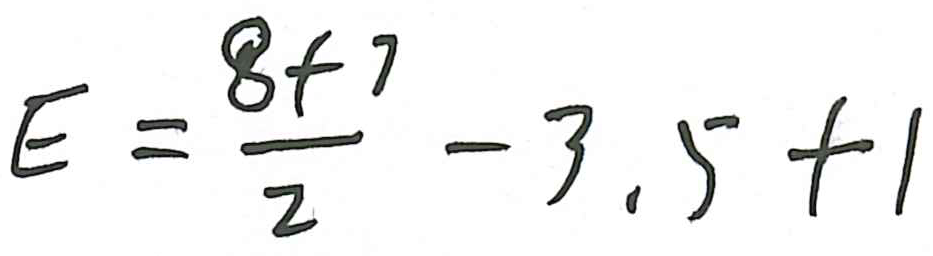 E = \frac{8+7}{2} - 3.5 + 1